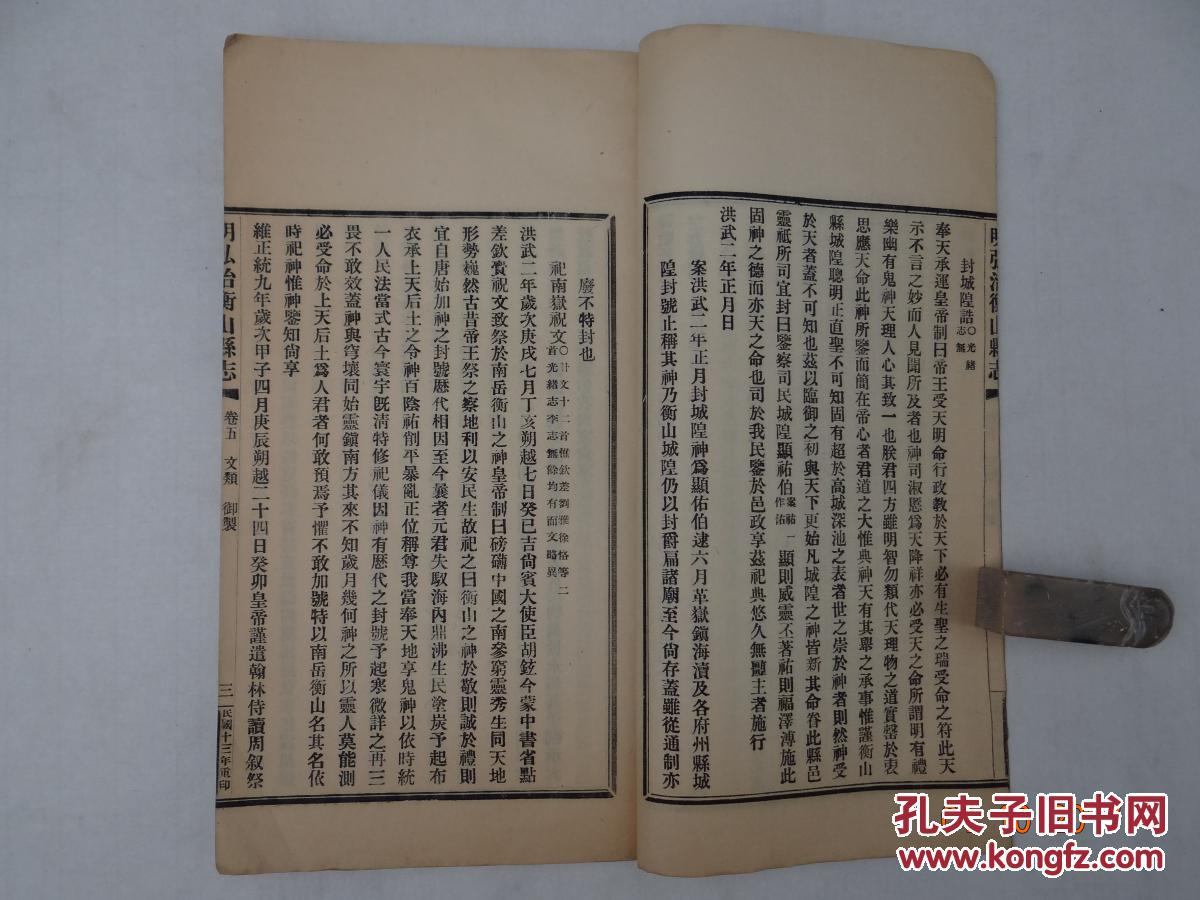 明弘治衡山縣志
封城隍誥〇光緒志無
奉天承運皇帝制曰帝王受天明命行政教於天下必有生聖之瑞受命之符此天
示不言之妙而人見聞所及者也神司淑慝爲天降祥亦必受天之命所謂明有禮
樂幽有鬼神天理人心其致一也朕君四方雖明智勿類代天理物之道實罄於衷
思應天命此神所鑒而簡在帝心者君道之大惟典神天有其舉之承事惟謹衡山
縣城隍聰明正直聖不可知固有超於高城深池之表者世之崇於神者則然神受
於天者蓋不可知也茲以臨御之初與天下更始凡城隍之神皆新其命眷此縣邑
靈祗所司宜封曰鑒察司民城隍顯祐伯案祐一作佑顯則威靈丕著祐則福澤溥施此
固神之德而亦天之命也司於我民鑒於邑政享茲祀典悠久無斁主者施行
洪武二年正月日
案洪武二年正月封城隍神爲顯佑伯逮六月革嶽鎭海瀆及各府州縣城
隍封號止稱其神乃衡山城隍仍以封爵扁諸廟至今尙存蓋雖從通制亦
廢不特封也
祀南嶽祝文〇廿文十二首惟欽差劉淮徐恪等二首光緒志李志無餘均有而文略異
洪武二年歲次庚戌七月丁亥朔越七日癸巳吉尙賓大使臣胡鉉今蒙中書省點
差欽賫祝文致祭於南岳衡山之神皇帝制曰磅礴中國之南參窮靈秀生同天地
形勢巍然古昔帝王祭之察地利以安民生故祀之曰衡山之神於敬則誠於禮則
宜自唐始加神之封號歷代相因至今曩者元君失馭海內鼎沸生民塗炭予起布
衣承上天后土之令神百陰祐削平暴亂正位稱尊我當奉天地享鬼神以依時統
一人民法當式古今寰宇旣清特修祀儀因神有歷代之封號予起寒微詳之再三
畏不敢效蓋神與穹壤同始靈鎭南方其來不知歲月幾何神之所以靈人莫能測
必受命於上天后土爲人君者何敢預焉予懼不敢加號特以南岳衡山名其名依
時祀神惟神鑒知尙享
維正統九年歲次甲子四月庚辰朔越二十四日癸卯皇帝謹遣翰林侍讀周叙祭
明弘治衡山縣志 卷五 文類 御製 三 民國十三年重印
孔夫子旧书网
www.kongfz.com